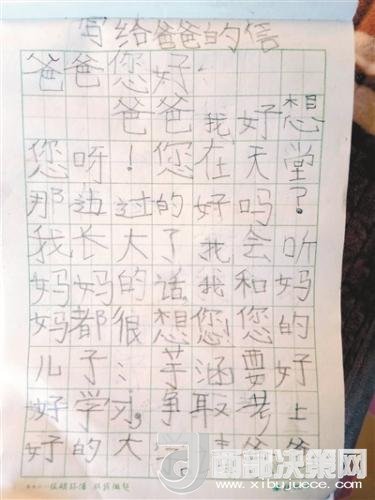 写给爸爸的信
爸爸您好
爸爸我好想
您呀！您在天堂
那边过的好吗？
我长大了我会听
妈妈的话，我和妈
妈都很想您！您的
儿子：芋涵要好
好学习，争取考上
好的大学 爸爸
西部决策网
www.xibujuece.com